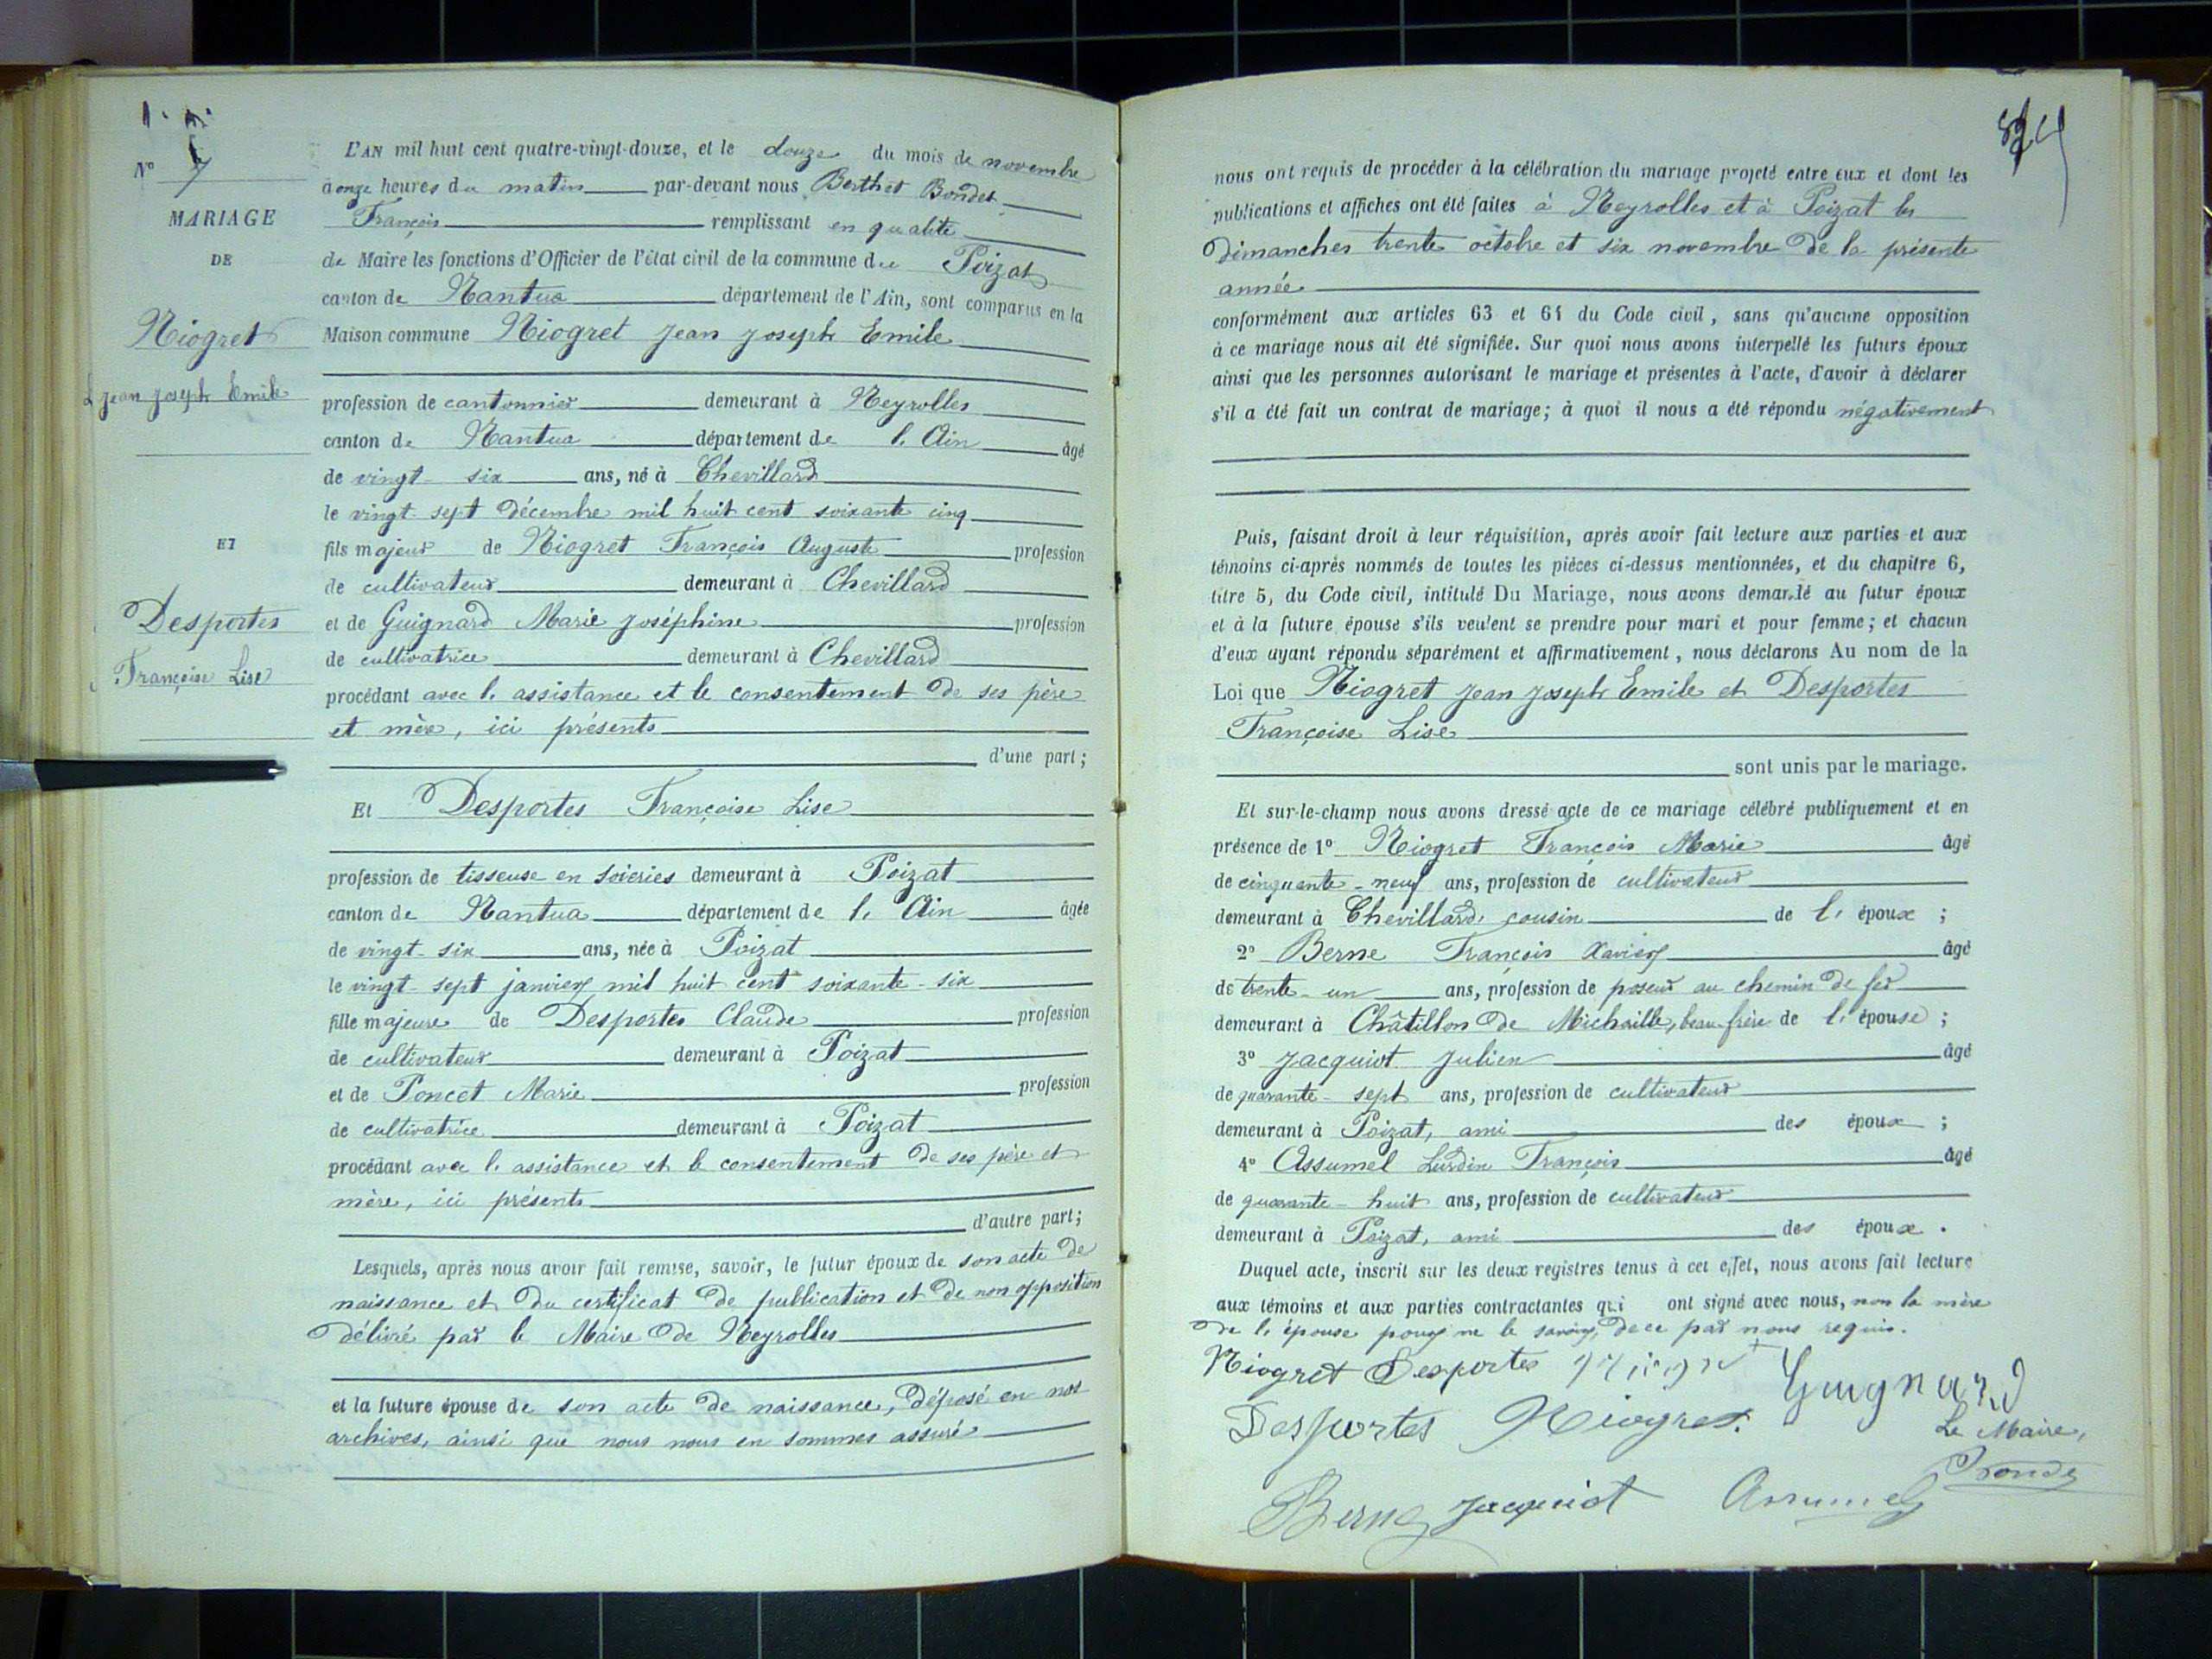 N° 7
MARIAGE
DE
Niogret
Jean Joseph Emile
ET
Desportes
Françoise Lise
L'AN mil huit cent quatre-vingt-douze, et le douze du mois de novembre
à onze heures du matin par-devant nous Berthet Bondet
François remplissant en qualité
de Maire les fonctions d'Officier de l'état civil de la commune du Poizat
canton de Nantua département de l'Ain, sont comparus en la
Maison commune Niogret Jean Joseph Emile
profession de cantonnier demeurant à Neyrolles
canton de Nantua département de l'Ain âgé
de vingt-six ans, né à Chevillard
le vingt-sept décembre mil huit cent soixante cinq
fils majeur de Niogret François Auguste profession
de cultivateur demeurant à Chevillard
et de Guignard Marie Joséphine profession
de cultivatrice demeurant à Chevillard
procédant avec l'assistance et le consentement de ses père
et mère, ici présents
d'une part;
Et Desportes Françoise Lise
profession de tisseuse en soieries demeurant à Poizat
canton de Nantua département de l'Ain âgée
de vingt-six ans, née à Poizat
le vingt-sept janvier mil huit cent soixante-six
fille majeure de Desportes Claude profession
de cultivateur demeurant à Poizat
et de Poncet Marie profession
de cultivatrice demeurant à Poizat
procédant avec l'assistance et le consentement de ses père et
mère, ici présents
d'autre part;
Lesquels, après nous avoir fait remise, savoir, le futur époux de son acte de
naissance et du certificat de publication et de non opposition
délivré par le Maire de Neyrolles
et la future épouse de son acte de naissance, déposé en nos
archives, ainsi que nous nous en sommes assuré
nous ont requis de procéder à la célébration du mariage projeté entre eux et dont les
publications et affiches ont été faites à Neyrolles et à Poizat les
dimanches trente octobre et six novembre de la présente
année
conformément aux articles 63 et 64 du Code civil, sans qu'aucune opposition
à ce mariage nous ait été signifiée. Sur quoi nous avons interpellé les futurs époux
ainsi que les personnes autorisant le mariage et présentes à l'acte, d'avoir à déclarer
s'il a été fait un contrat de mariage; à quoi il nous a été répondu négativement
Puis, faisant droit à leur réquisition, après avoir fait lecture aux parties et aux
témoins ci-après nommés de toutes les pièces ci-dessus mentionnées, et du chapitre 6,
titre 5, du Code civil, intitulé Du Mariage, nous avons demandé au futur époux
et à la future épouse s'ils veulent se prendre pour mari et pour femme; et chacun
d'eux ayant répondu séparément et affirmativement, nous déclarons Au nom de la
Loi que Niogret Jean Joseph Emile et Desportes
Françoise Lise
sont unis par le mariage.
Et sur-le-champ nous avons dressé acte de ce mariage célébré publiquement et en
présence de 1° Niogret François Marie âgé
de cinquante-neuf ans, profession de cultivateur
demeurant à Chevillard, cousin de l'époux;
2° Berne François Xavier âgé
de trente-un ans, profession de poseur au chemin de fer
demeurant à Châtillon de Michaille, beau-frère de l'épouse;
3° Jacquiot Julien âgé
de quarante-sept ans, profession de cultivateur
demeurant à Poizat, ami des époux;
4° Assumel Lurdin François âgé
de quarante-huit ans, profession de cultivateur
demeurant à Poizat, ami des époux.
Duquel acte, inscrit sur les deux registres tenus à cet effet, nous avons fait lecture
aux témoins et aux parties contractantes qui ont signé avec nous, non la mère
de l'épouse pour ne le savoir, de ce par nous requis.
Niogret Desportes Guignard
Desportes Niogret
Le Maire,
Berne Jacquiot Assumel